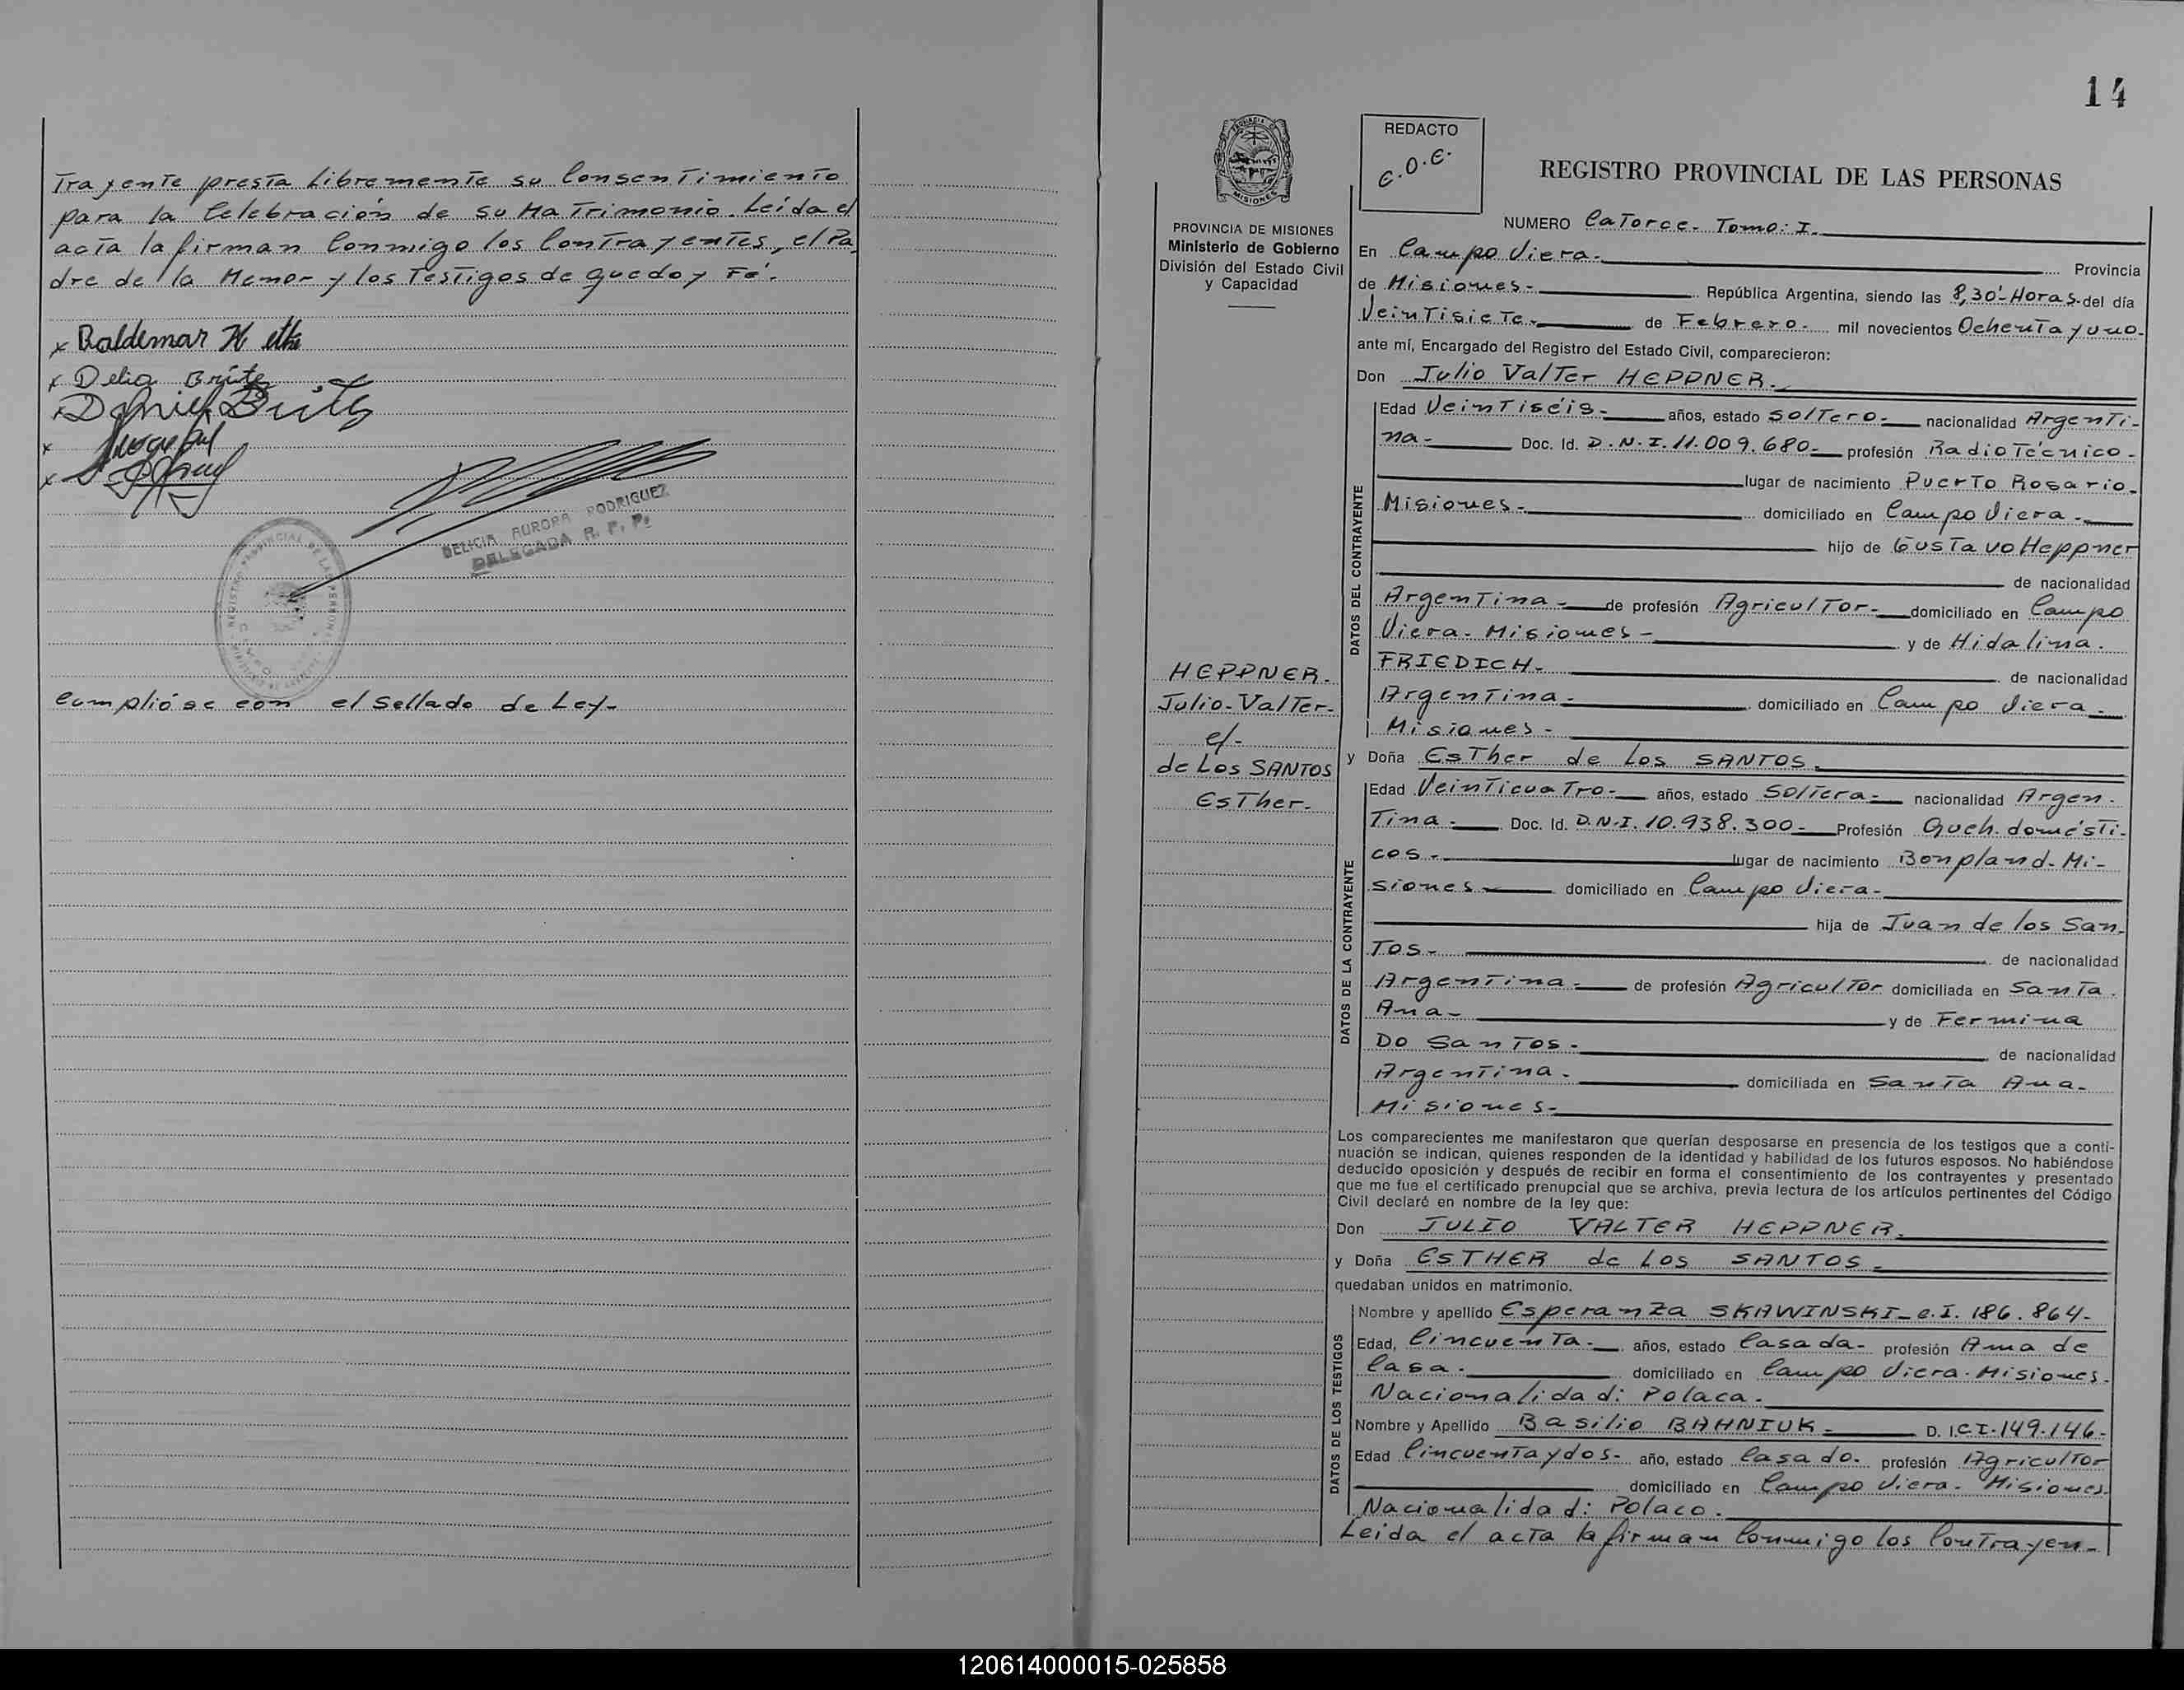 Trayente presta Libremente su Consentimiento
para la Celebración de su Matrimonio. Leída el
acta la firman Conmigo los Contrayentes, el Pa
dre de la Menor y los Testigos de que doy Fé.
x Baldemar
x Delia Britez
x Daniel Britez
x
x
DELICIA AURORA RODRIGUEZ
DELEGADA R. P. P.
Cumplióse con el Sellado de Ley-
14
REDACTO
C.O.C.
REGISTRO PROVINCIAL DE LAS PERSONAS
PROVINCIA DE MISIONES
Ministerio de Gobierno
División del Estado Civil
y Capacidad
HEPPNER.
Julio-Valter-
c/-
de Los SANTOS
Esther.
NUMERO Catorce. Tomo: I.
En Campo Viera. Provincia
de Misiones- República Argentina, siendo las 8,30'-Horas- del día
Veintisiete. de Febrero. mil novecientos Ochenta y uno-
ante mí, Encargado del Registro del Estado Civil, comparecieron:
Don Julio Valter HEPPNER.
DATOS DEL CONTRAYENTE
Edad Veintiséis- años, estado Soltero- nacionalidad Argenti-
na- Doc. Id. D.N.I. 11.009.680- profesión Radio Técnico-
lugar de nacimiento Puerto Rosario-
Misiones- domiciliado en Campo Viera-
hijo de Gustavo Heppner
de nacionalidad
Argentina- de profesión Agricultor- domiciliado en Campo
Viera- Misiones- y de Hidalina.
FRIEDICH- de nacionalidad
Argentina- domiciliado en Campo Viera-
Misiones-
y Doña Esther de Los SANTOS.
DATOS DE LA CONTRAYENTE
Edad Veinticuatro- años, estado Soltera- nacionalidad Argen-
Tina- Doc. Id. D.N.I. 10.938.300- Profesión Queh. domésti-
cos- lugar de nacimiento Bonpland- Mi-
siones- domiciliado en Campo Viera-
hija de Juan de los San-
Tos- de nacionalidad
Argentina- de profesión Agricultor domiciliada en Santa
Ana- y de Fermina
Do Santos- de nacionalidad
Argentina- domiciliada en Santa Ana-
Misiones-
Los comparecientes me manifestaron que querían desposarse en presencia de los testigos que a conti-
nuación se indican, quienes responden de la identidad y habilidad de los futuros esposos. No habiéndose
deducido oposición y después de recibir en forma el consentimiento de los contrayentes y presentado
que me fue el certificado prenupcial que se archiva, previa lectura de los artículos pertinentes del Código
Civil declaré en nombre de la ley que:
Don JULIO VALTER HEPPNER.
y Doña ESTHER de Los SANTOS-
quedaban unidos en matrimonio.
DATOS DE LOS TESTIGOS
Nombre y apellido Esperanza SKAWINSKI- C.I. 186.864-
Edad, Cincuenta- años, estado Casada- profesión Ama de
Casa- domiciliado en Campo Viera- Misiones-
Nacionalidad: Polaca-
Nombre y Apellido Basilio BAHNIUK- D. I.C.I. 149.146-
Edad Cincuenta y dos- año, estado Casado- profesión Agricultor
domiciliado en Campo Viera- Misiones-
Nacionalidad: Polaco.
Leida el acta la firman Conmigo los Contrayen-
120614000015-025858